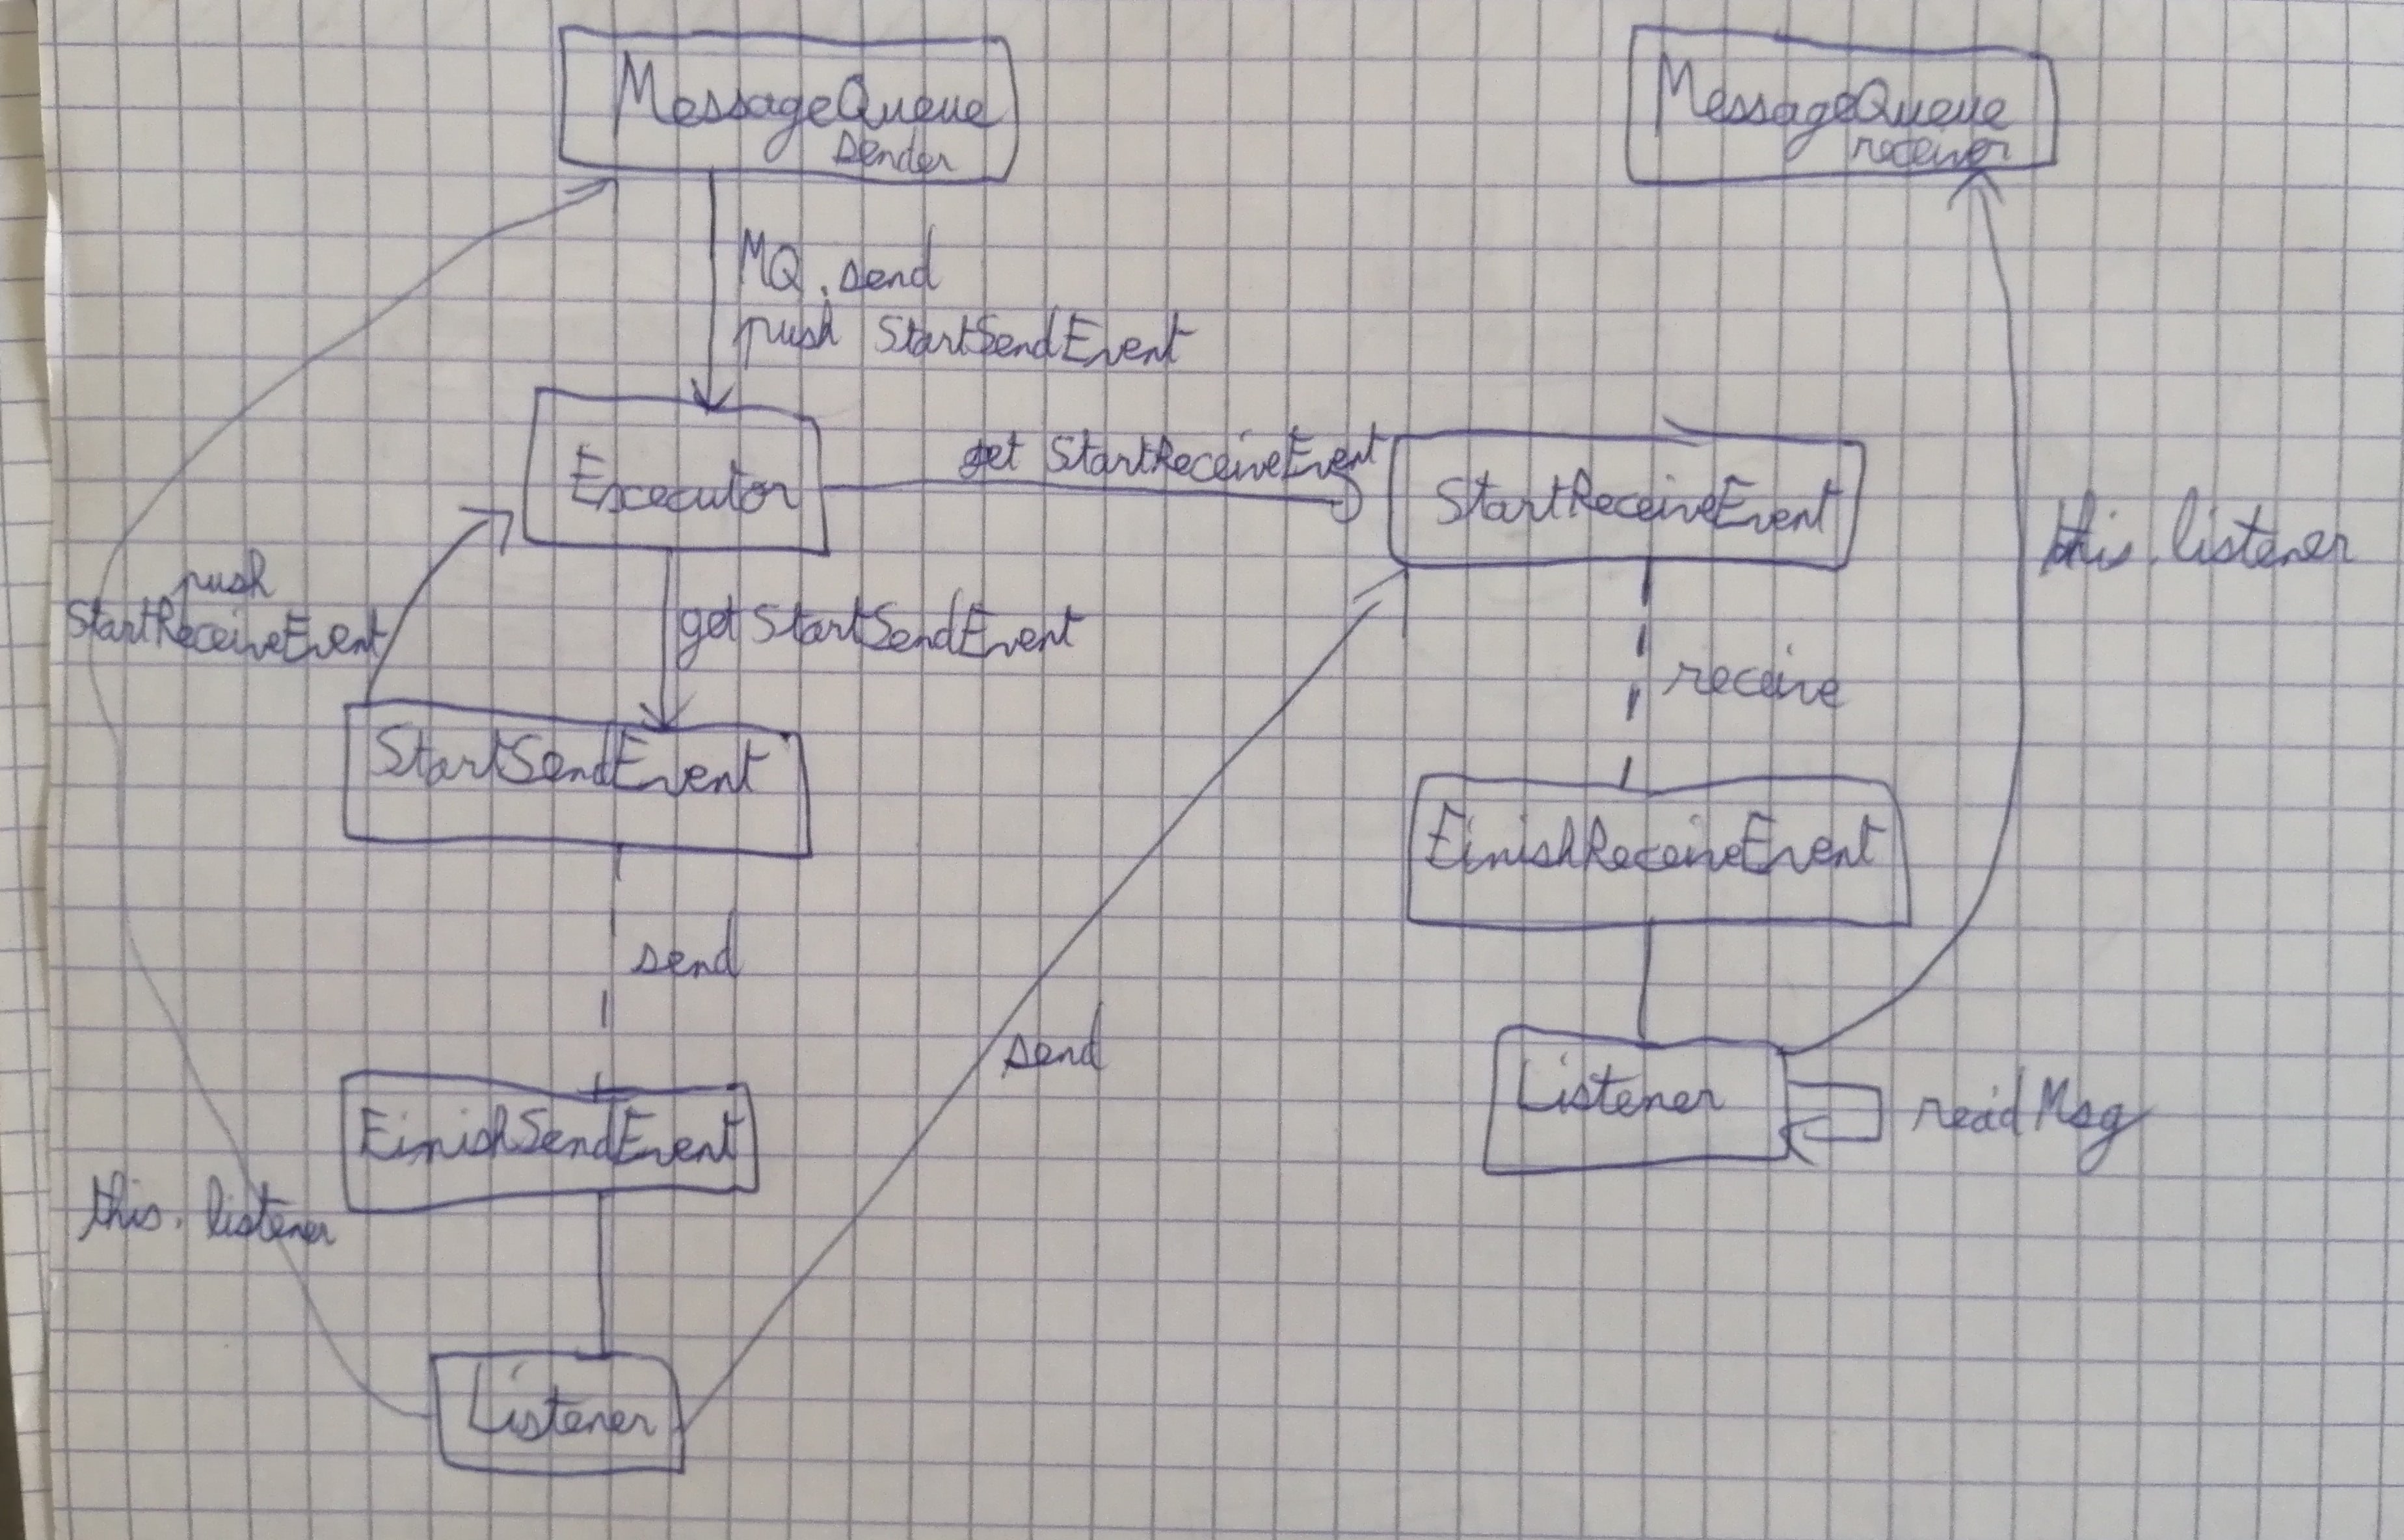 MessageQueue
sender
MessageQueue
receiver
MQ.send
push StartSendEvent
Executor
get StartReceiveEvent
StartReceiveEvent
this.listener
push
StartReceiveEvent
get StartSendEvent
receive
StartSendEvent
FinishReceiveEvent
send
send
Listener
readMsg
FinishSendEvent
this.listener
Listener